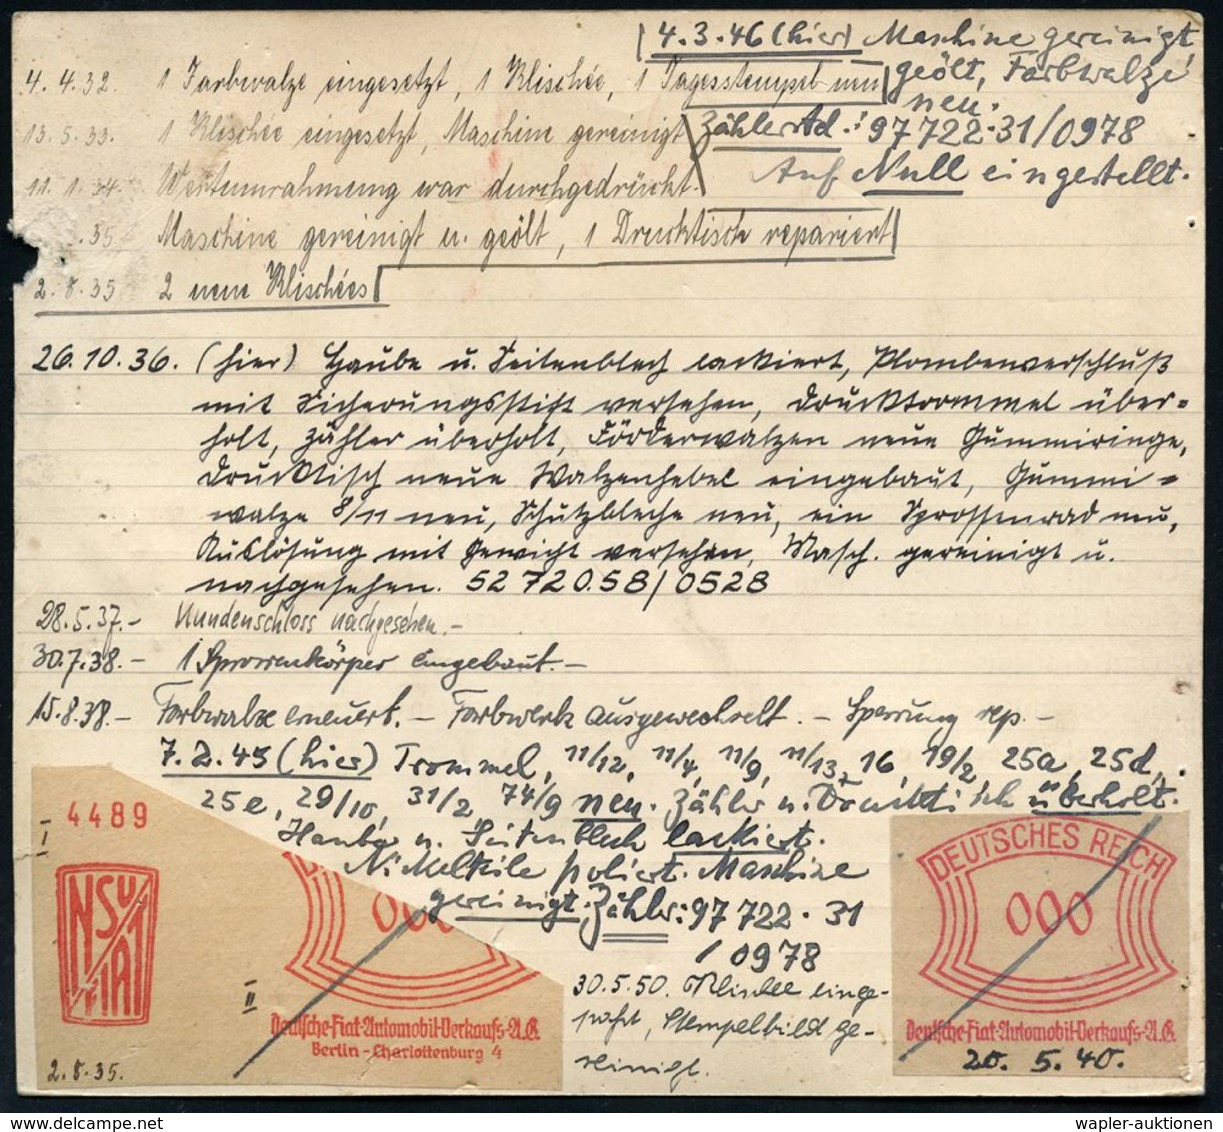 4.3.46 (hier) Maschine gereinigt
geölt, Farbwalze
neu.
Zählerstd.: 97722.31/0978
Auf Null eingestellt.
4.4.32. 1 Farbwalze eingesetzt, 1 Klischée, 1 Tagesstempel neu
13.5.33. 1 Klischée eingesetzt, Maschine gereinigt
11.1.34. Wertumrahmung war durchgedrückt.
.35 Maschine gereinigt u. geölt, 1 Drucktisch repariert
2.8.35 2 neue Klischées
26.10.36. (hier) Haube u. Seitenblech lackiert, Plombenverschluß
mit Sicherungsstift versehen, Drucktrommel über=
holt, Zähler überholt, Förderwalzen neue Gummiringe,
Drucktisch neue Walzenhebel eingebaut, Gummi=
walze 8/11 neu, Schutzbleche neu, ein Sprossenrad neu,
Auslösung mit Gewicht versehen, Masch. gereinigt u.
nachgesehen. 52720.58/0528
28.5.37.- Kundenschloss nachgesehen.-
30.7.38.- 1 Sprossenkörper eingebaut.-
15.8.38.- Farbwalze erneuert. - Farbwerk ausgewechselt. - Sperrung rep.-
7.2.45 (hier) Trommel, 11/12, 11/4, 11/9, 11/13, 16, 19/2, 25a, 25d,
25e, 29/10, 31/2, 74/9 neu. Zähler u. Drucktisch überholt.
Haube u. Seitenblech lackiert.
Nickelteile poliert. Maschine
gereinigt. Zähler: 97722.31
/0978
30.5.50. Klischee einge-
paßt, Stempelbild ge-
reinigt.
I
4489
NSU
FIAT
II
000
Deutsche-Fiat-Automobil-Verkaufs-A.G.
Berlin-Charlottenburg 4
2.8.35.
DEUTSCHES REICH
000
Deutsche-Fiat-Automobil-Verkaufs-A.G.
20.5.40.
wapler-auktionen